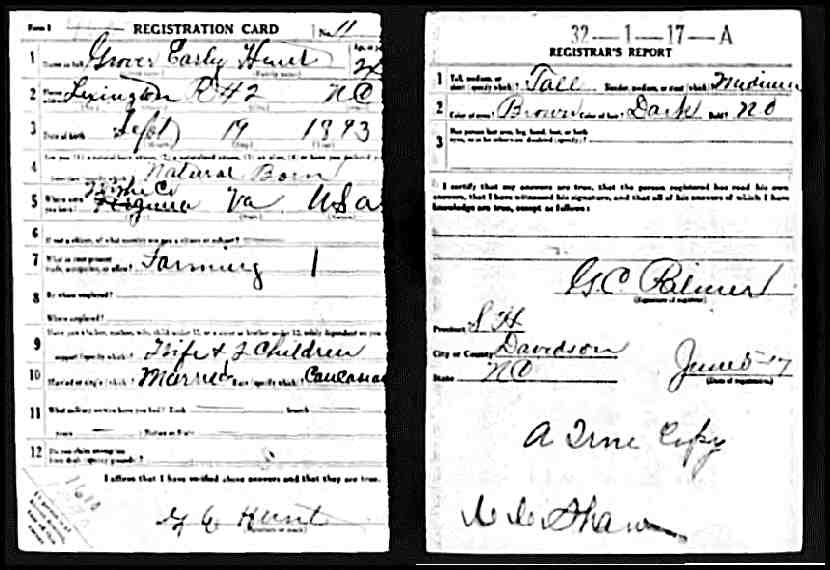 Form 1 REGISTRATION CARD No. 11
1 Name in full Grover Early Hunt
2 Lexington R#2 NC
3 Date of birth Sept 19 1893
4 Natural Born
5 Where were you born? Va USa
6 If not a citizen, of what country are you a citizen or subject?
7 What is your present trade, occupation, or office? Farming 1
8 By whom employed?
Where employed?
9 Have you a father, mother, wife, child under 12, or a sister or brother under 12, solely dependent on you
support (specify which)? Wife & 2 Children
10 Married or single (which)? Married Race (specify which)? Caucasian
11 What military service have you had? Rank branch
years Nation or State
12 Do you claim exemption from draft (specify grounds)?
I affirm that I have verified above answers and that they are true.
G E Hunt
(Signature or mark)
32—1—17—A
REGISTRAR'S REPORT
1 Tall, medium, or short (specify which)? Tall Slender, medium, or stout (which)? Medium
2 Color of eyes? Brown Color of hair? Dark Bald? No
3 Has person lost arm, leg, hand, foot, or both
eyes, or is he otherwise disabled (specify)?
I certify that my answers are true, that the person registered has read his own
answers, that I have witnessed his signature, and that all of his answers of which I have
knowledge are true, except as follows:
G.C. Palmer
(Signature of registrar)
Precinct S H
City or County Davidson
State NC June 5-17
(Date of registration)
A True Copy
Shaw